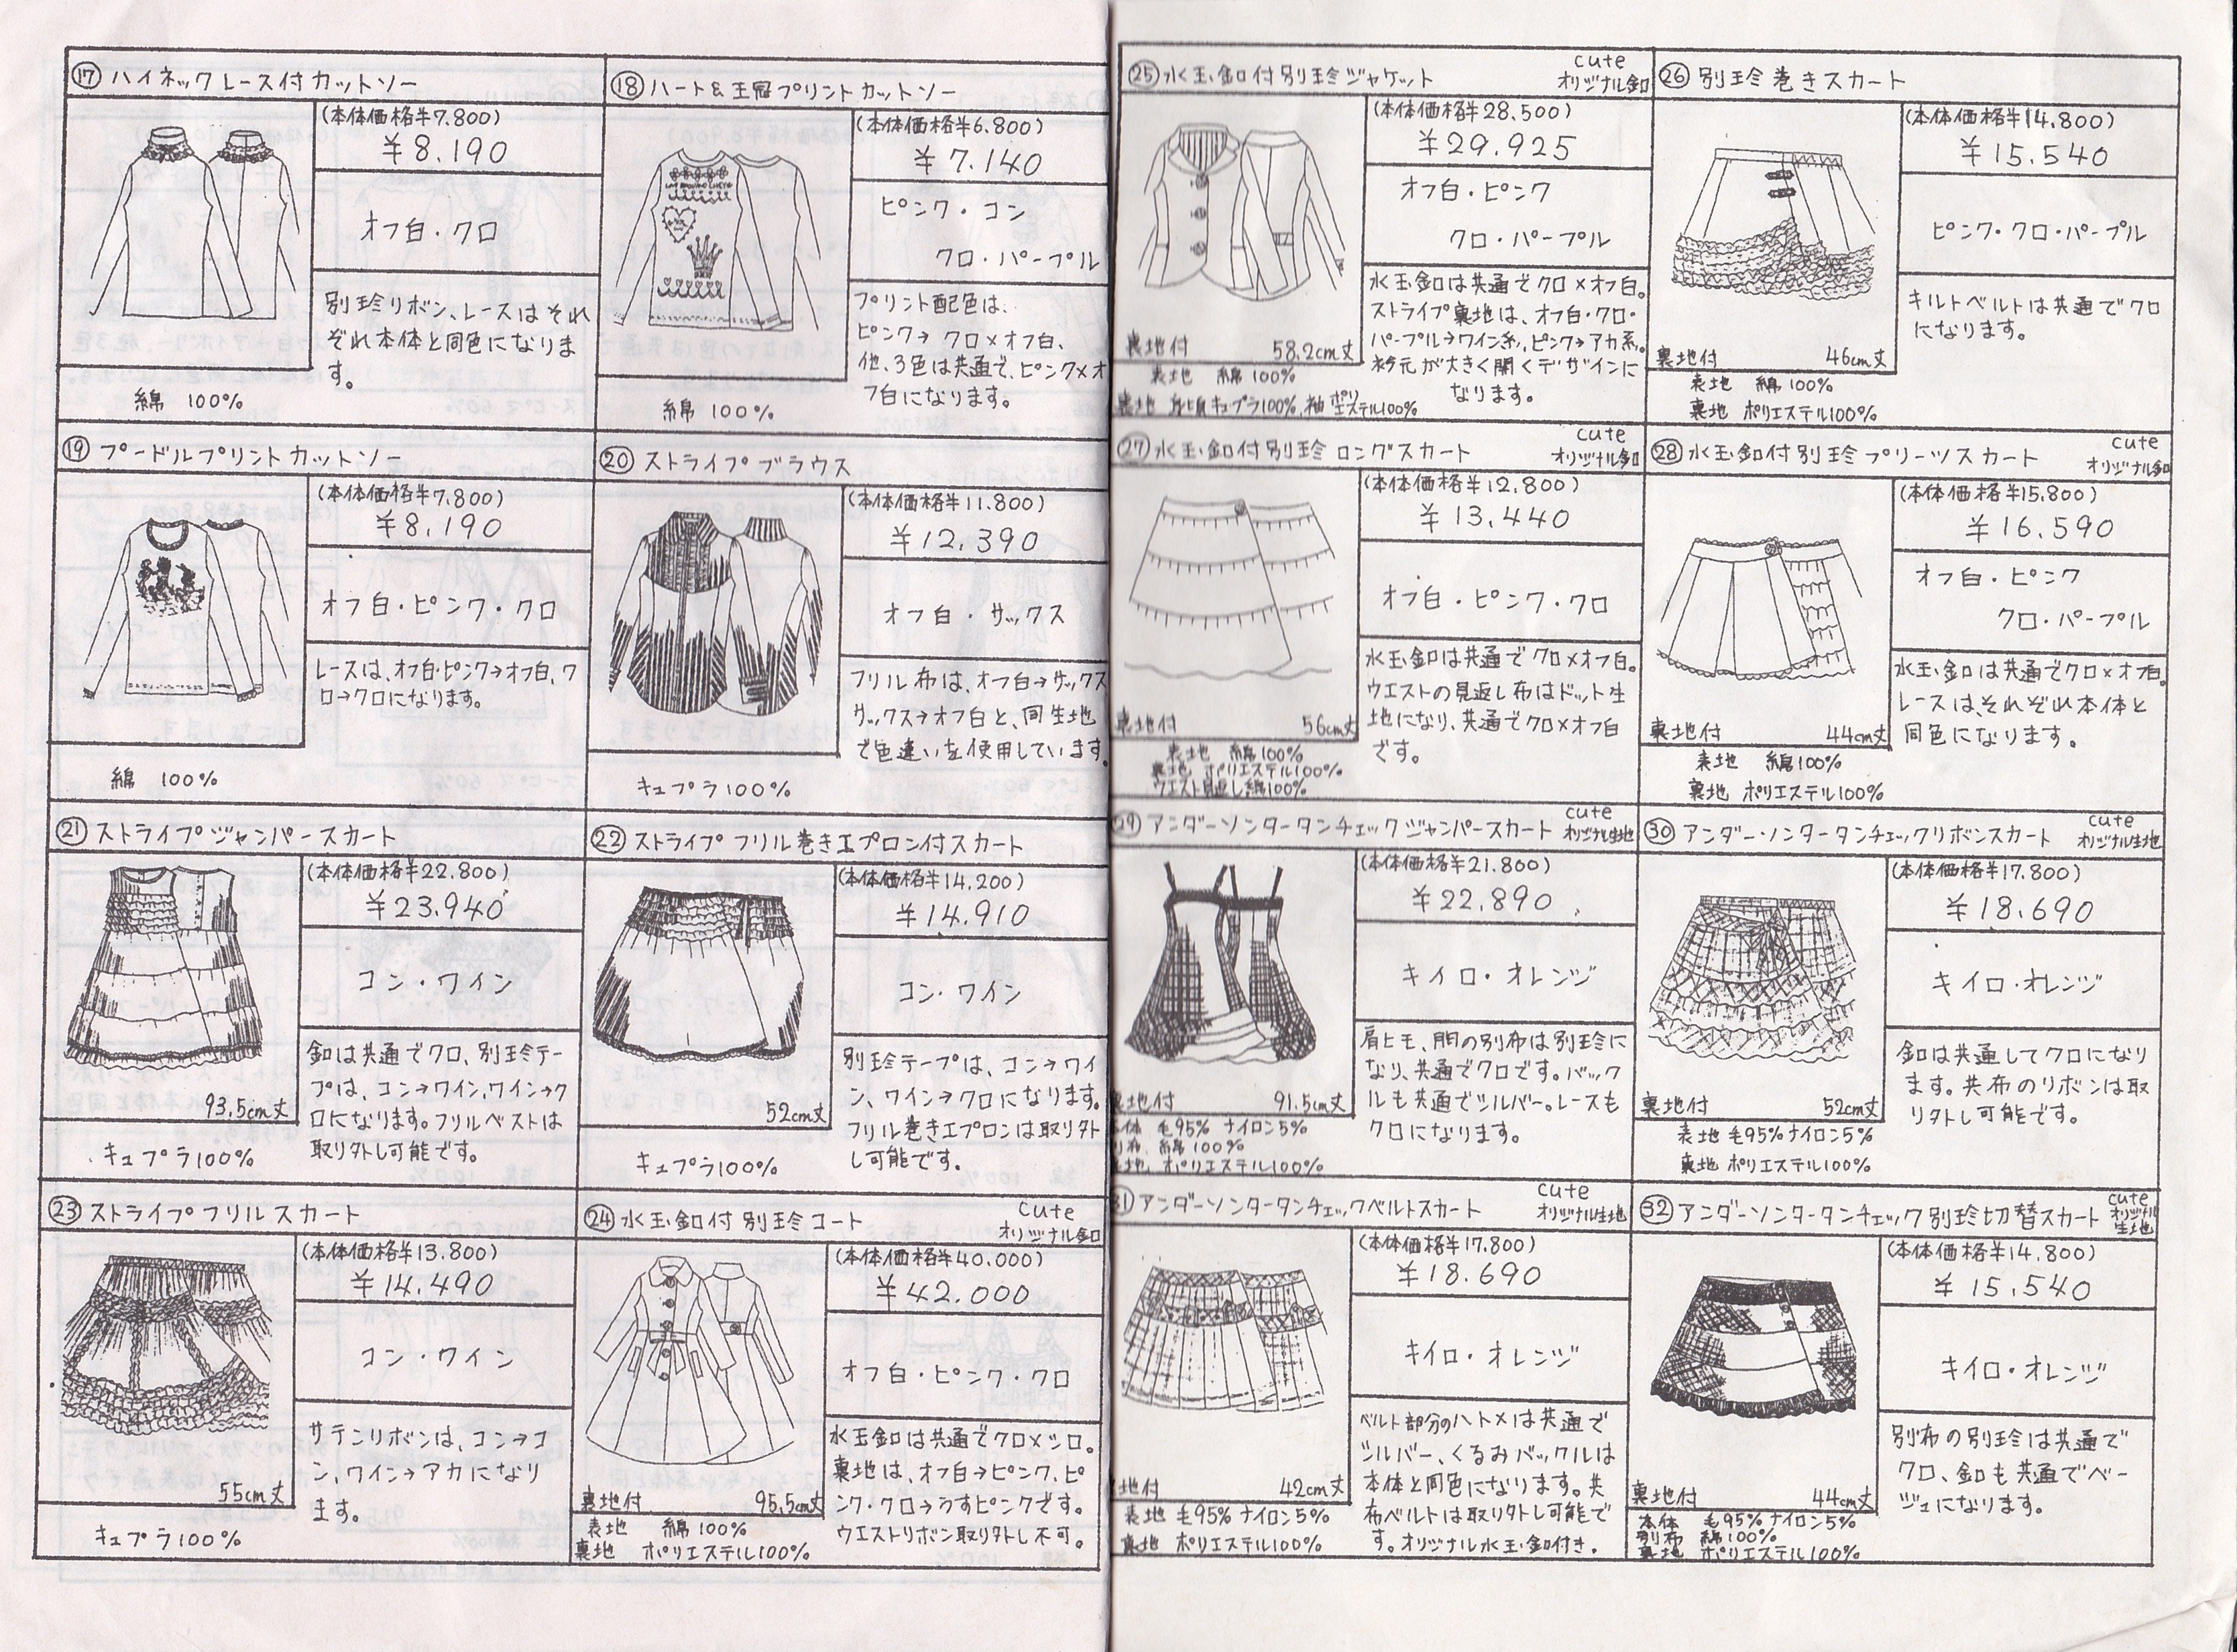 ⑰ハイネックレース付カットソー
(本体価格¥7.800)
¥8.190
オフ白・クロ
別珍リボン、レースはそれ
ぞれ本体と同色になりま
す。
綿 100%
⑱ハート&王冠プリントカットソー
(本体価格¥6.800)
¥7.140
ピンク・コン
クロ・パープル
プリント配色は、
ピンク→クロ×オフ白、
他、3色は共通で、ピンク×オ
フ白になります。
綿 100%
⑲プードルプリントカットソー
(本体価格¥7.800)
¥8.190
オフ白・ピンク・クロ
レースは、オフ白・ピンク→オフ白、ク
ロ→クロになります。
綿 100%
⑳ストライプブラウス
(本体価格¥11.800)
¥12.390
オフ白・サックス
フリル布は、オフ白→サックス
サックス→オフ白と、同生地
で色違いを使用しています。
キュプラ100%
㉑ストライプジャンパースカート
(本体価格¥22.800)
¥23.940
コン・ワイン
釦は共通でクロ、別珍テー
プは、コン→ワイン、ワイン→ク
ロになります。フリルベストは
取り外し可能です。
93.5cm丈
キュプラ100%
㉒ストライプフリル巻きエプロン付スカート
(本体価格¥14.200)
¥14.910
コン・ワイン
別珍テープは、コン→ワイ
ン、ワイン→クロになります。
フリル巻きエプロンは取り外
し可能です。
52cm丈
キュプラ100%
㉓ストライプフリルスカート
(本体価格¥13.800)
¥14.490
コン・ワイン
サテンリボンは、コン→コ
ン、ワイン→アカになり
ます。
55cm丈
キュプラ100%
㉔水玉釦付別珍コート
cute
オリジナル釦
(本体価格¥40.000)
¥42.000
オフ白・ピンク・クロ
水玉釦は共通でクロ×シロ。
裏地は、オフ白→ピンク、ピ
ンク・クロ→うすピンクです。
ウエストリボン取り外し不可。
裏地付 95.5cm丈
表地 綿100%
裏地 ポリエステル100%
㉕水玉釦付別珍ジャケット
cute
オリジナル釦
(本体価格¥28.500)
¥29.925
オフ白・ピンク
クロ・パープル
水玉釦は共通でクロ×オフ白。
ストライプ裏地は、オフ白・クロ・
パープル→ワイン系、ピンク→アカ系。
衿元が大きく開くデザインに
なります。
裏地付 58.2cm丈
表地 綿100%
裏地 身頃キュプラ100%、袖ポリエステル100%
㉖別珍巻きスカート
(本体価格¥14.800)
¥15.540
ピンク・クロ・パープル
キルトベルトは共通でクロ
になります。
裏地付 46cm丈
表地 綿100%
裏地 ポリエステル100%
㉗水玉釦付別珍ロングスカート
cute
オリジナル釦
(本体価格¥12.800)
¥13.440
オフ白・ピンク・クロ
水玉釦は共通でクロ×オフ白。
ウエストの見返し布はドット生
地になり、共通でクロ×オフ白
です。
裏地付 56cm丈
表地 綿100%
裏地 ポリエステル100%
ウエスト見返し綿100%
㉘水玉釦付別珍プリーツスカート
cute
オリジナル釦
(本体価格¥15.800)
¥16.590
オフ白・ピンク
クロ・パープル
水玉釦は共通でクロ×オフ白。
レースは、それぞれ本体と
同色になります。
裏地付 44cm丈
表地 綿100%
裏地 ポリエステル100%
㉙アンダーソンタータンチェックジャンパースカート
cute
オリジナル生地
(本体価格¥21.800)
¥22.890
キイロ・オレンジ
肩ヒモ、胸の別布は別珍に
なり、共通でクロです。バック
ルも共通でシルバー。レースも
クロになります。
裏地付 91.5cm丈
本体 毛95% ナイロン5%
別布 綿100%
裏地 ポリエステル100%
㉚アンダーソンタータンチェックリボンスカート
cute
オリジナル生地
(本体価格¥17.800)
¥18.690
キイロ・オレンジ
釦は共通してクロになり
ます。共布のリボンは取
り外し可能です。
裏地付 52cm丈
表地 毛95% ナイロン5%
裏地 ポリエステル100%
㉛アンダーソンタータンチェックベルトスカート
cute
オリジナル生地
(本体価格¥17.800)
¥18.690
キイロ・オレンジ
ベルト部分のハトメは共通で
シルバー、くるみバックルは
本体と同色になります。共
布ベルトは取り外し可能で
す。オリジナル水玉釦付き。
裏地付 42cm丈
表地 毛95% ナイロン5%
裏地 ポリエステル100%
㉜アンダーソンタータンチェック別珍切替スカート
cute
オリジナル
生地
(本体価格¥14.800)
¥15.540
キイロ・オレンジ
別布の別珍は共通で
クロ、釦も共通でベー
ジュになります。
裏地付 44cm丈
本体 毛95% ナイロン5%
別布 綿100%
裏地 ポリエステル100%